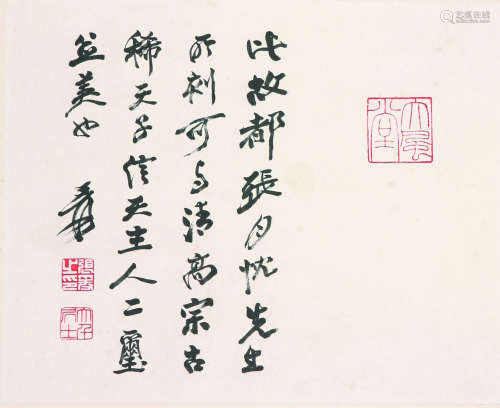 此故都張月忱先生
所刻可与清高宗古
稀天子信天主人二璽
並美也
爰
大風堂
張爰之印
大千居士